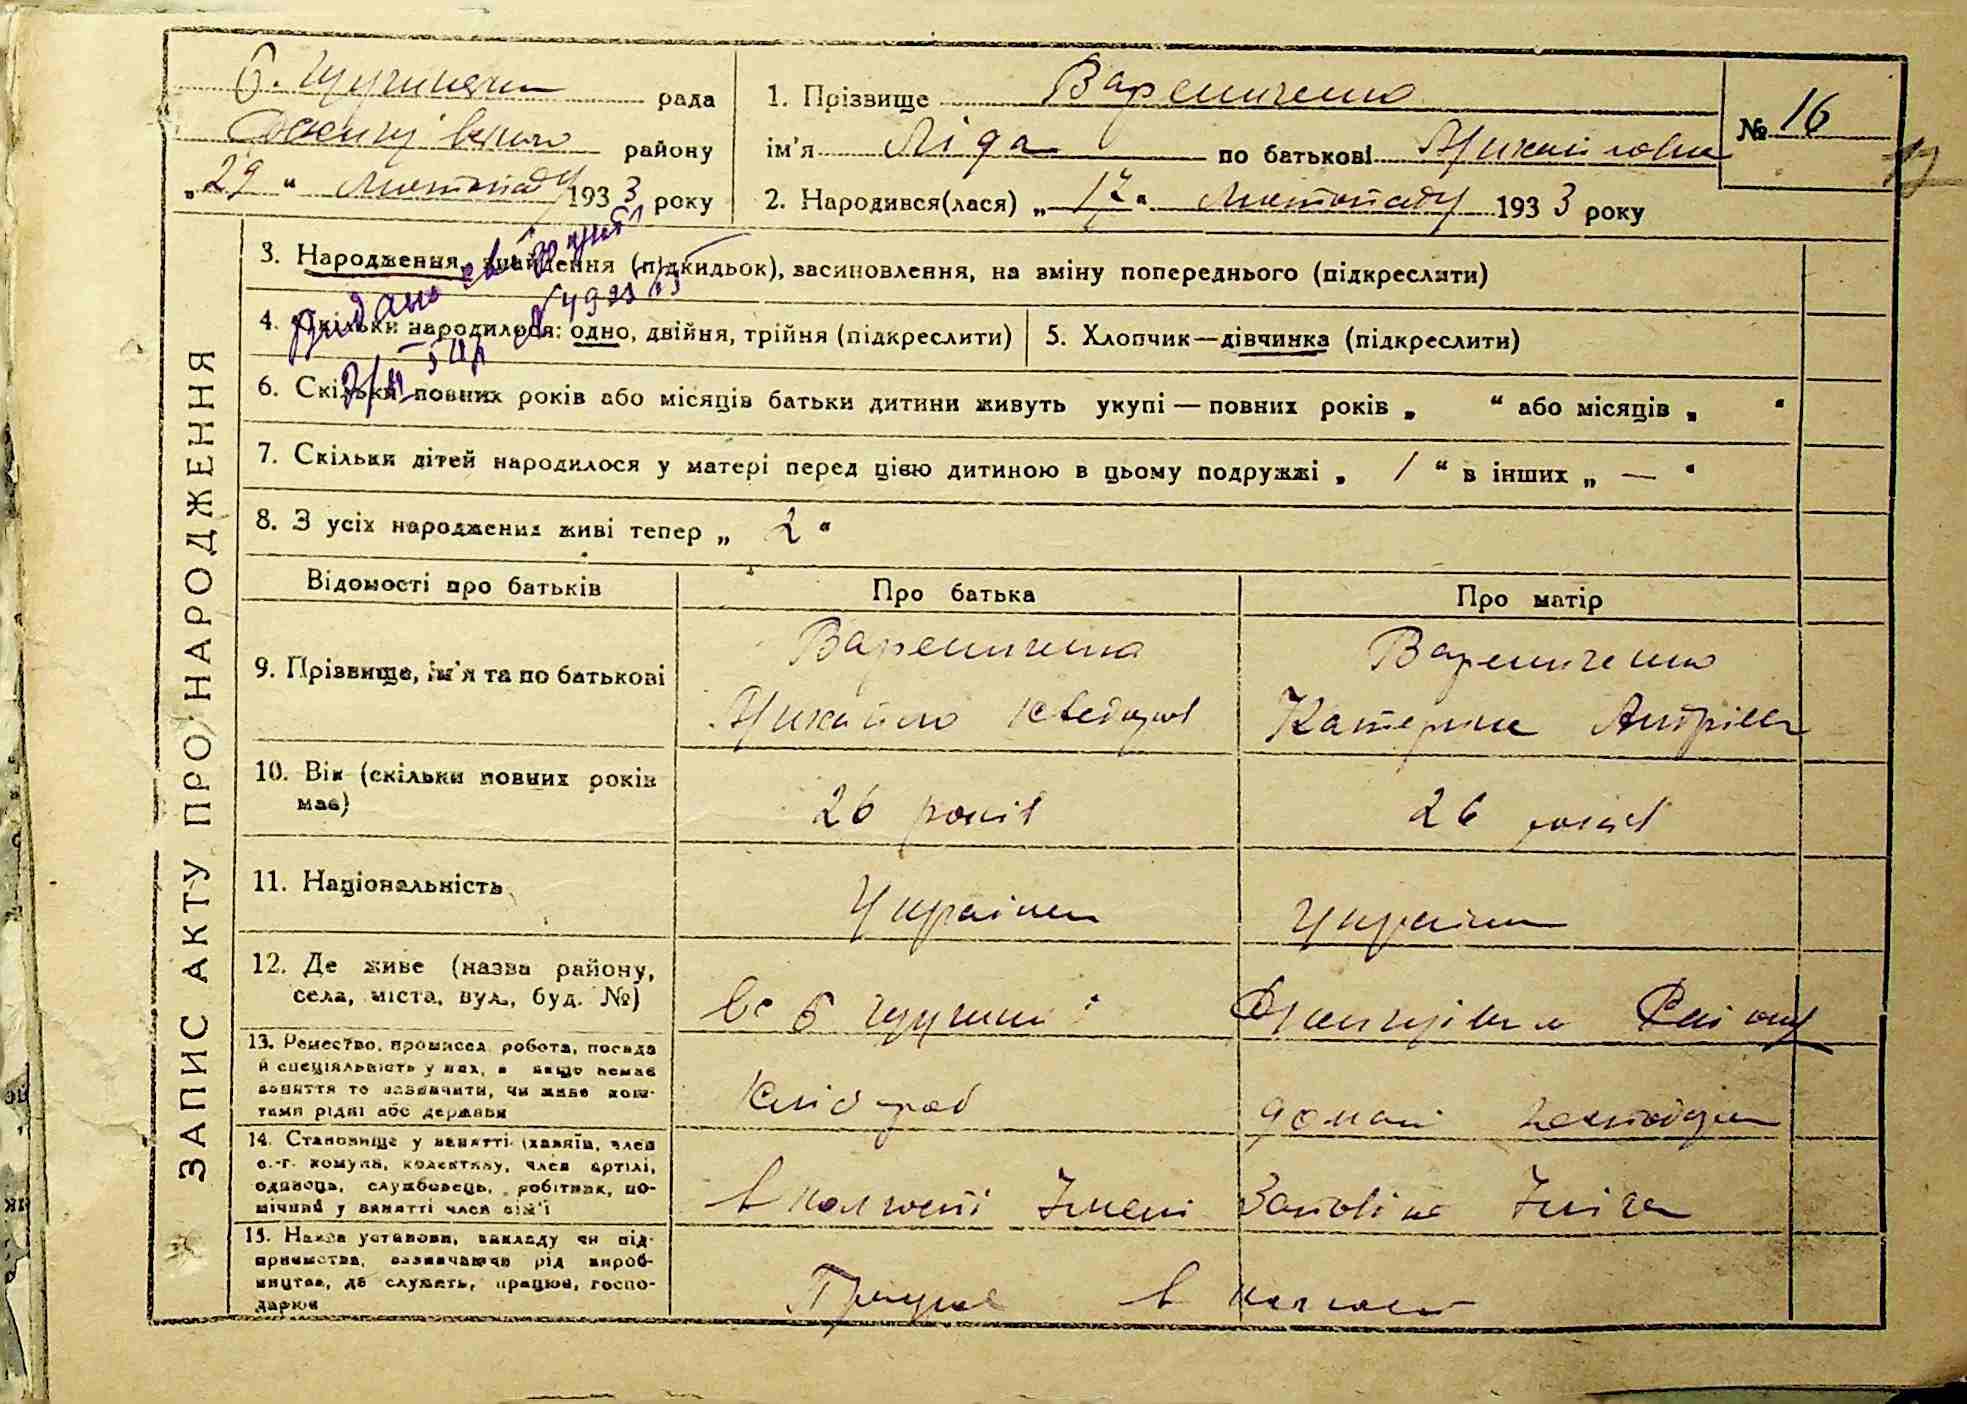 рада
району
„ 29 “ листопаду 1933 року
1. Прізвище Варениченко
ім'я Ліда по батькові Михайловна
2. Народився(лася) „ 17 “ листопаду 1933 року
№ 16
ЗАПИС АКТУ ПРО НАРОДЖЕННЯ
3. Народження, знайдення (підкидьок), засиновлення, на зміну попереднього (підкреслити)
4. Скільки народилося: одно, двійня, трійня (підкреслити)
5. Хлопчик—дівчинка (підкреслити)
6. Скільки повних років або місяців батьки дитини живуть укупі — повних років „ “ або місяців „ “
7. Скільки дітей народилося у матері перед цією дитиною в цьому подружжі „ 1 “ в інших „ — “
8. З усіх народжених живі тепер „ 2 “
Відомості про батьків
Про батька
Про матір
9. Прізвище, ім'я та по батькові
Варениченко
Михайло
Варениченко
Катерина
10. Вік (скільки повних років
має)
26 років
26 років
11. Національність
Українец
Українка
12. Де живе (назва району,
села, міста, вул., буд. №)
Району
13. Ремество, промисел, робота, посада
й спеціяльність у них, а якщо немає
заняття то зазначити, чи живе кош-
тами рідні або держави
хлібороб
домаш
14. Становище у занятті (хазяїн, член
с.-г. комуни, колективу, член артілі,
одинець, службовець, робітник, по-
мічний у занятті член сім'ї
в колгоспі Імені Заповіт Іліча
15. Назва установи, закладу чи під-
приємства, зазначаючи рід вироб-
ництва, де служить, працює, госпо-
дарює
Працює в колгосп